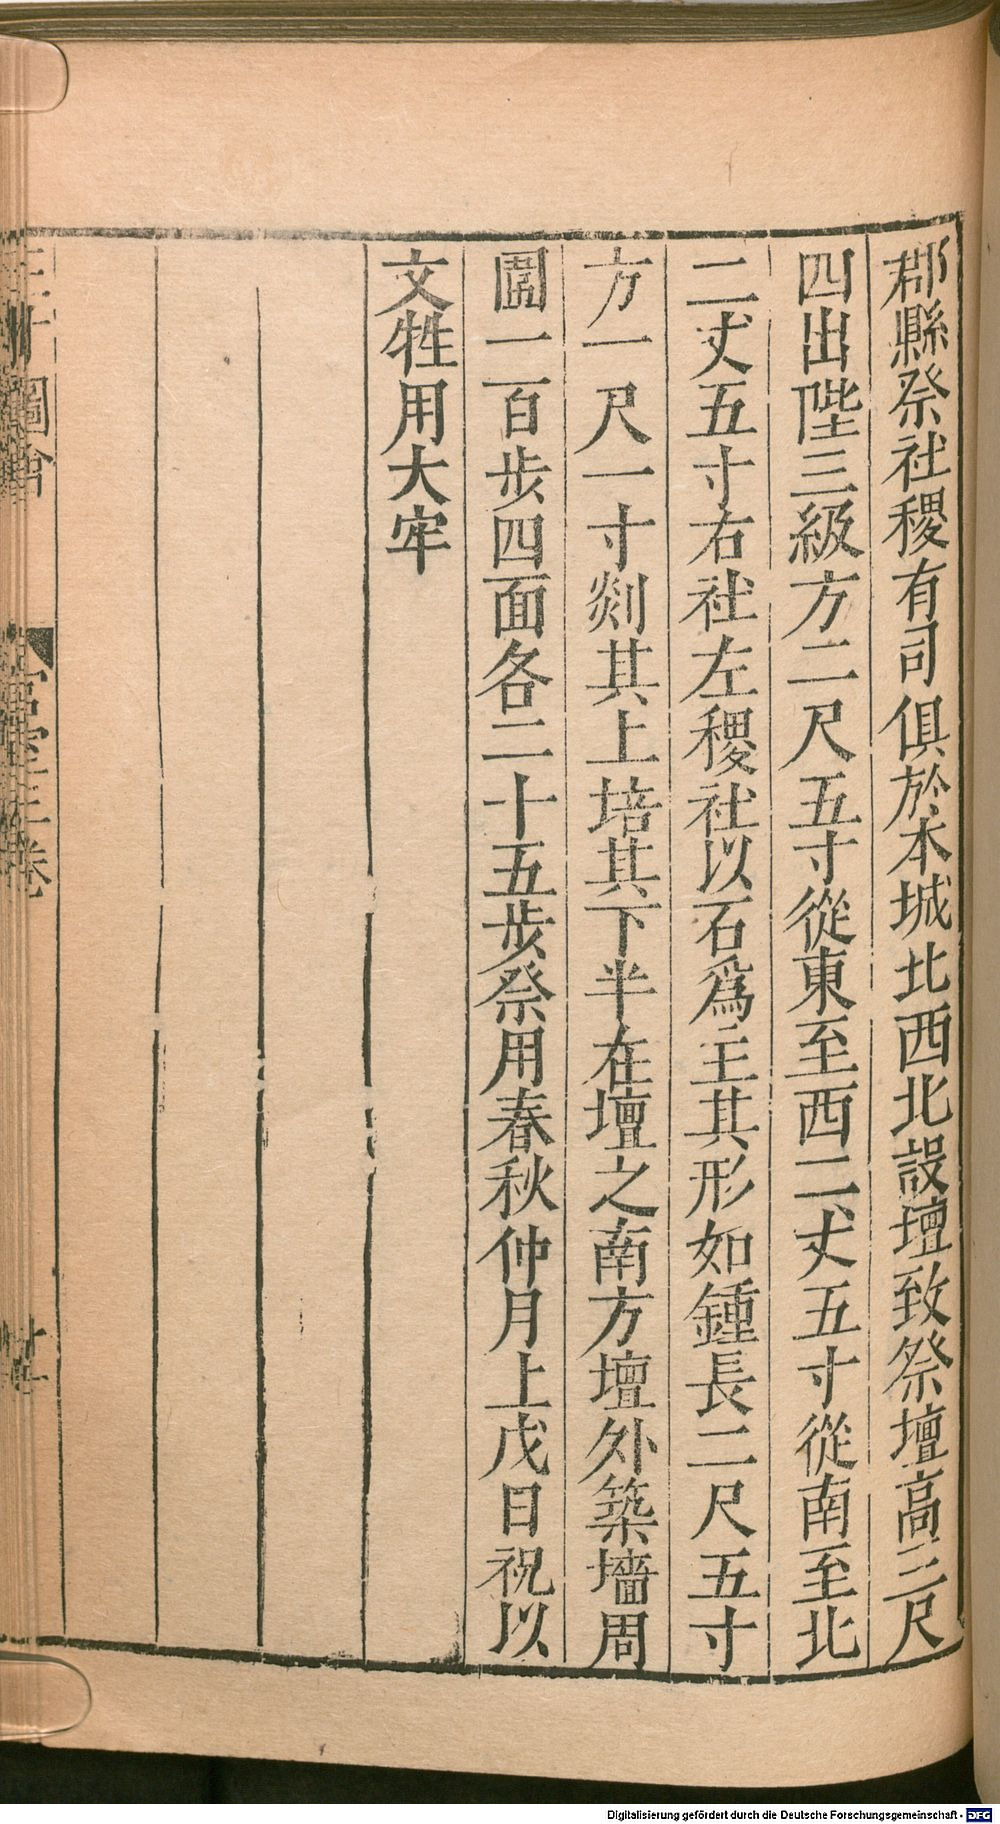 郡縣祭社稷有司俱於本城北西北設壇致祭壇高三尺
四出陛三級方二尺五寸從東至西二丈五寸從南至北
二丈五寸右社左稷社以石爲主其形如鍾長二尺五寸
方一尺一寸剡其上培其下半在壇之南方壇外築墻周
圍一百步四面各二十五步祭用春秋仲月上戊日祝以
文牲用大牢
Digitalisierung gefördert durch die Deutsche Forschungsgemeinschaft - DFG